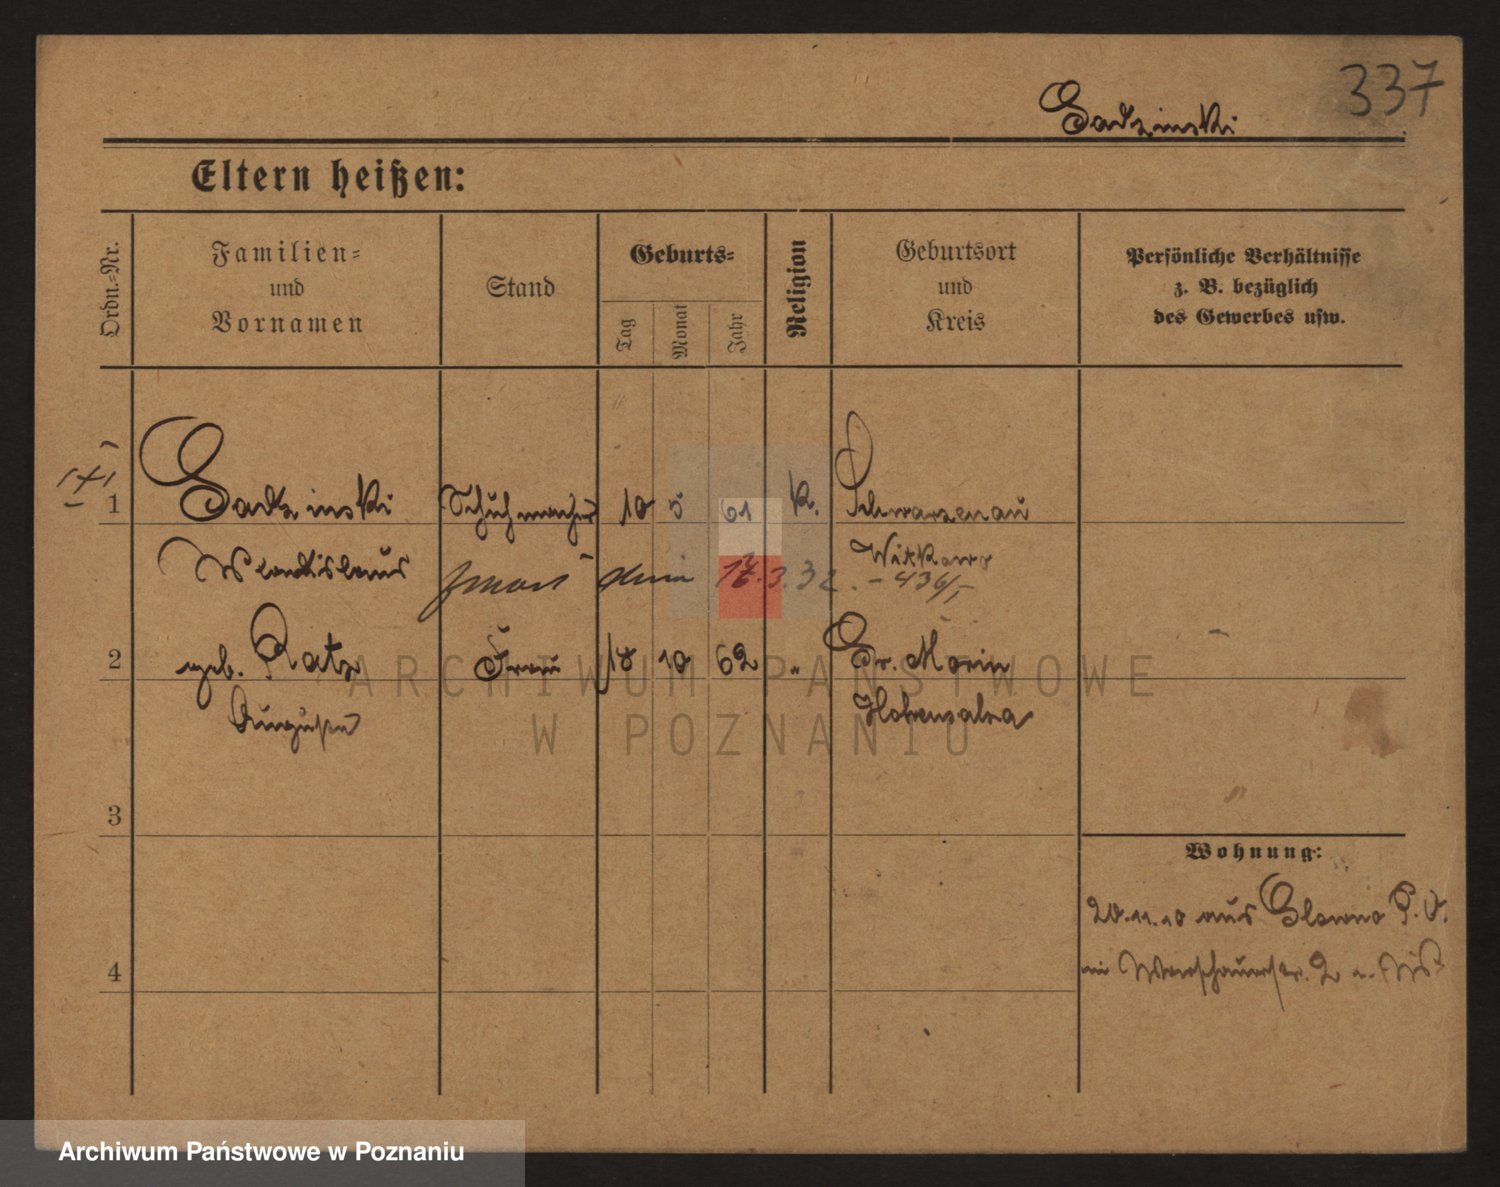 337
Sadzinski
Eltern heißen:
Ordn.-Nr.
Familien-
und
Vornamen
Stand
Geburts-
Tag
Monat
Jahr
Religion
Geburtsort
und
Kreis
Persönliche Verhältnisse
z. B. bezüglich
des Gewerbes usw.
1 Sadzinski Schuhmacher 10 5 61 K. Schwarzenau
Wladislaus Witkowo
zmarł dnia 17.3.32. - 436/
2 geb. Ratz Frau 18 10 62 " Gr. Morin
Auguste Hohensalza
3
4
Wohnung:
20.11.10 aus Glowno P. O.
Warschauerstr. 2
ARCHIWUM PAŃSTWOWE
W POZNANIU
Archiwum Państwowe w Poznaniu